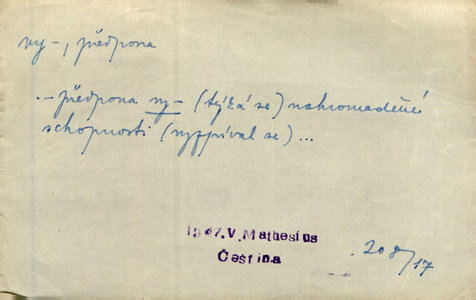 vy-, předpona
...předpona vy- (týká se) nahromadění
schopnosti (vyzpíval se)...
1947.V.Mathesius
Čeština
208/17